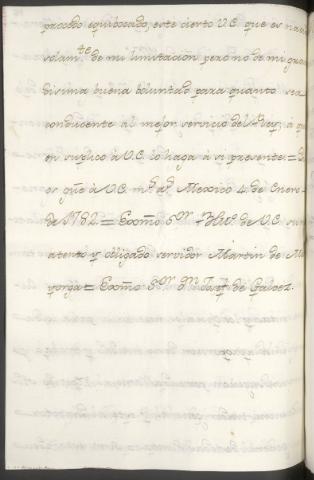 procedo equibocado, este cierto V.E. que es naci
solam.te de mi limitación pero no de mi gran
disima buena boluntad para quanto sea
conducente al mejor servicio del Rey, a qu
en suplico à V.E. lo haga à si presente. = D
os gũe à V.E. m.s a.s Mexico 4. de Enero
de 1782. = Exmõ S.or = Blm. de V.E. su
atento y obligado servidor Martin de Ma
yorga = Exmõ S.or D.n Josef de Galvez.